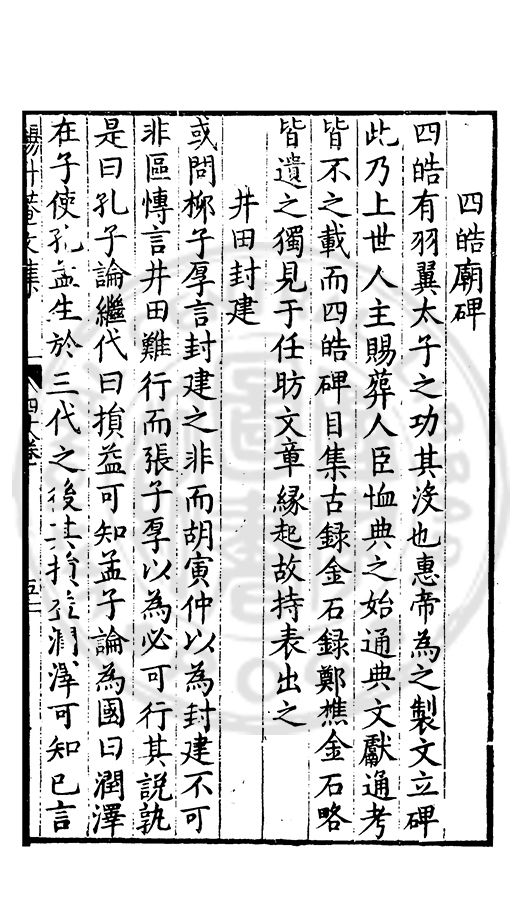 四皓廟碑
四皓有羽翼太子之功其没也惠帝為之製文立碑
此乃上世人主賜葬人臣恤典之始通典文獻通考
皆不之載而四皓碑目集古録金石録鄭樵金石略
皆遺之獨見于任昉文章縁起故持表出之
井田封建
或問柳子厚言封建之非而胡寅仲以為封建不可
非區慱言井田難行而張子厚以為必可行其説孰
是曰孔子論繼代曰損益可知孟子論為國曰潤澤
在子使孔孟生於三代之後其損益潤澤可知已言